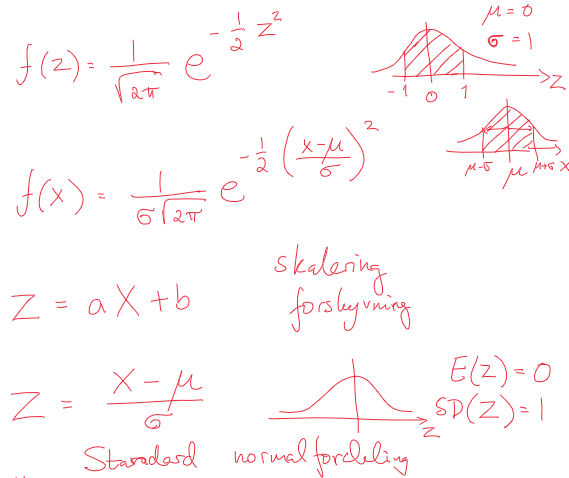 f(z) = 1/√(2π) e^(-1/2 z²)
μ = 0
σ = 1
-1 0 1 z
f(x) = 1/(σ√(2π)) e^(-1/2 ((x-μ)/σ)²)
μ-σ μ μ+σ x
Z = aX + b
skalering
forskyvning
Z = (X - μ)/σ
z
E(Z) = 0
SD(Z) = 1
Standard normalfordeling